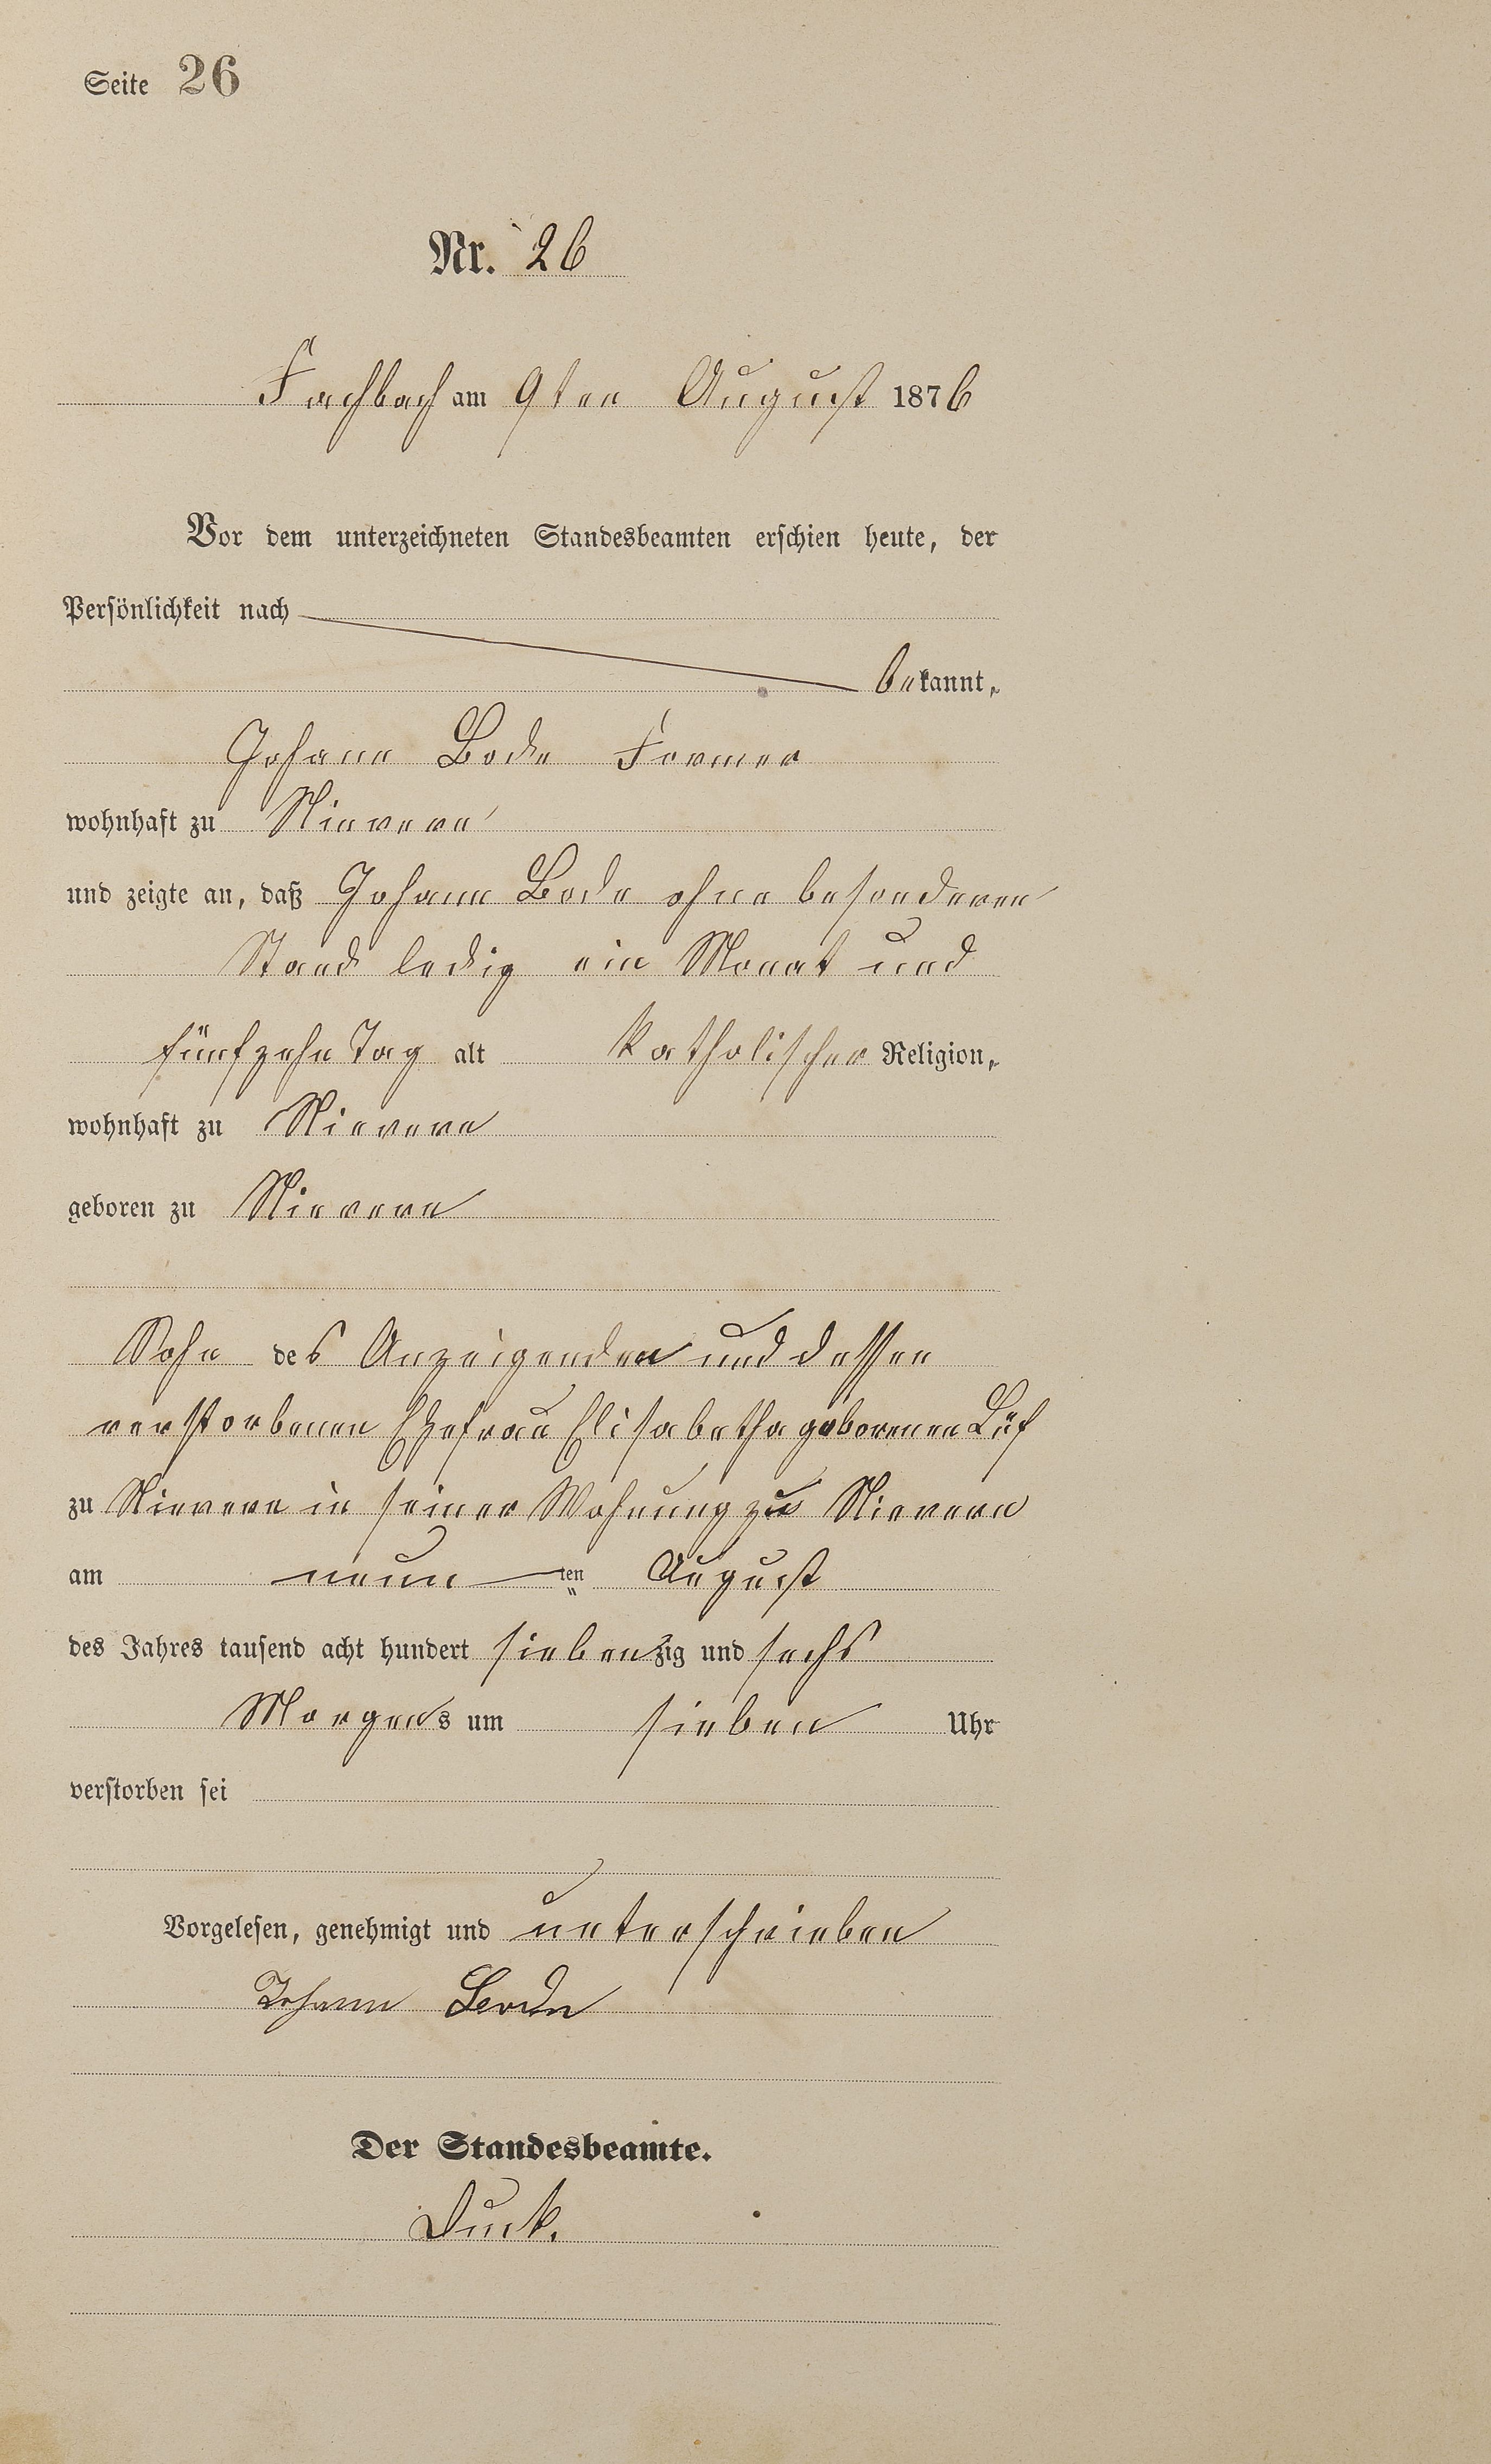 Seite 26
Nr. 26
Fachbach am 9ten August 1876
Vor dem unterzeichneten Standesbeamten erschien heute, der
Persönlichkeit nach
bekannt,
Johann Bode Former
wohnhaft zu Nievern
und zeigte an, daß Johann Bode ohne besonderen
Stand ledig ein Monat und
fünfzehn Tag alt katholischer Religion,
wohnhaft zu Nievern
geboren zu Nievern
Sohn des Anzeigenden und dessen
verstorbenen Ehefrau Elisabetha geborenen
zu Nievern in seiner Wohnung zu Nievern
am neun ten August
des Jahres tausend acht hundert siebenzig und sechs
Morgens um sieben Uhr
verstorben sei
Vorgelesen, genehmigt und unterschrieben
Johann
Der Standesbeamte.